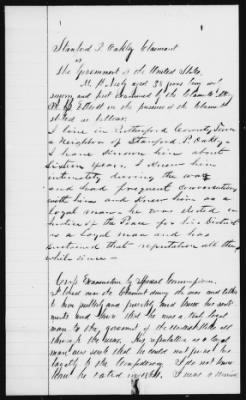 Stanford P. Oakley Claimant
vs
The Government of the United States.
M. P. Neely aged 38 years being duly
sworn and first examined by the Claimants Atty
Elliott in the presence of the Claimant
stated as follows.
I live in Rutherford County Tenn
a Neighbor of Stanford P. Oakley
I have Known him about
Sixteen Years. I Knew him
intimately during the war
and had frequent conversations
with him and Knew him as a
loyal man. he was elected as
Justice of the Peace for his district
as a loyal man and has
sustained that reputation all the
while since —
Cross Examination by Special Commissioner.
I lived near the Claimant during the war and talked
to him publicly and privately and know his senti
ments and Knew that he was a true loyal
man to the government of the United States all
through the war. His reputation as a loyal
man was such that he could not prove his
loyalty to the Confederacy. I do not know
how he voted in 1861. I was a